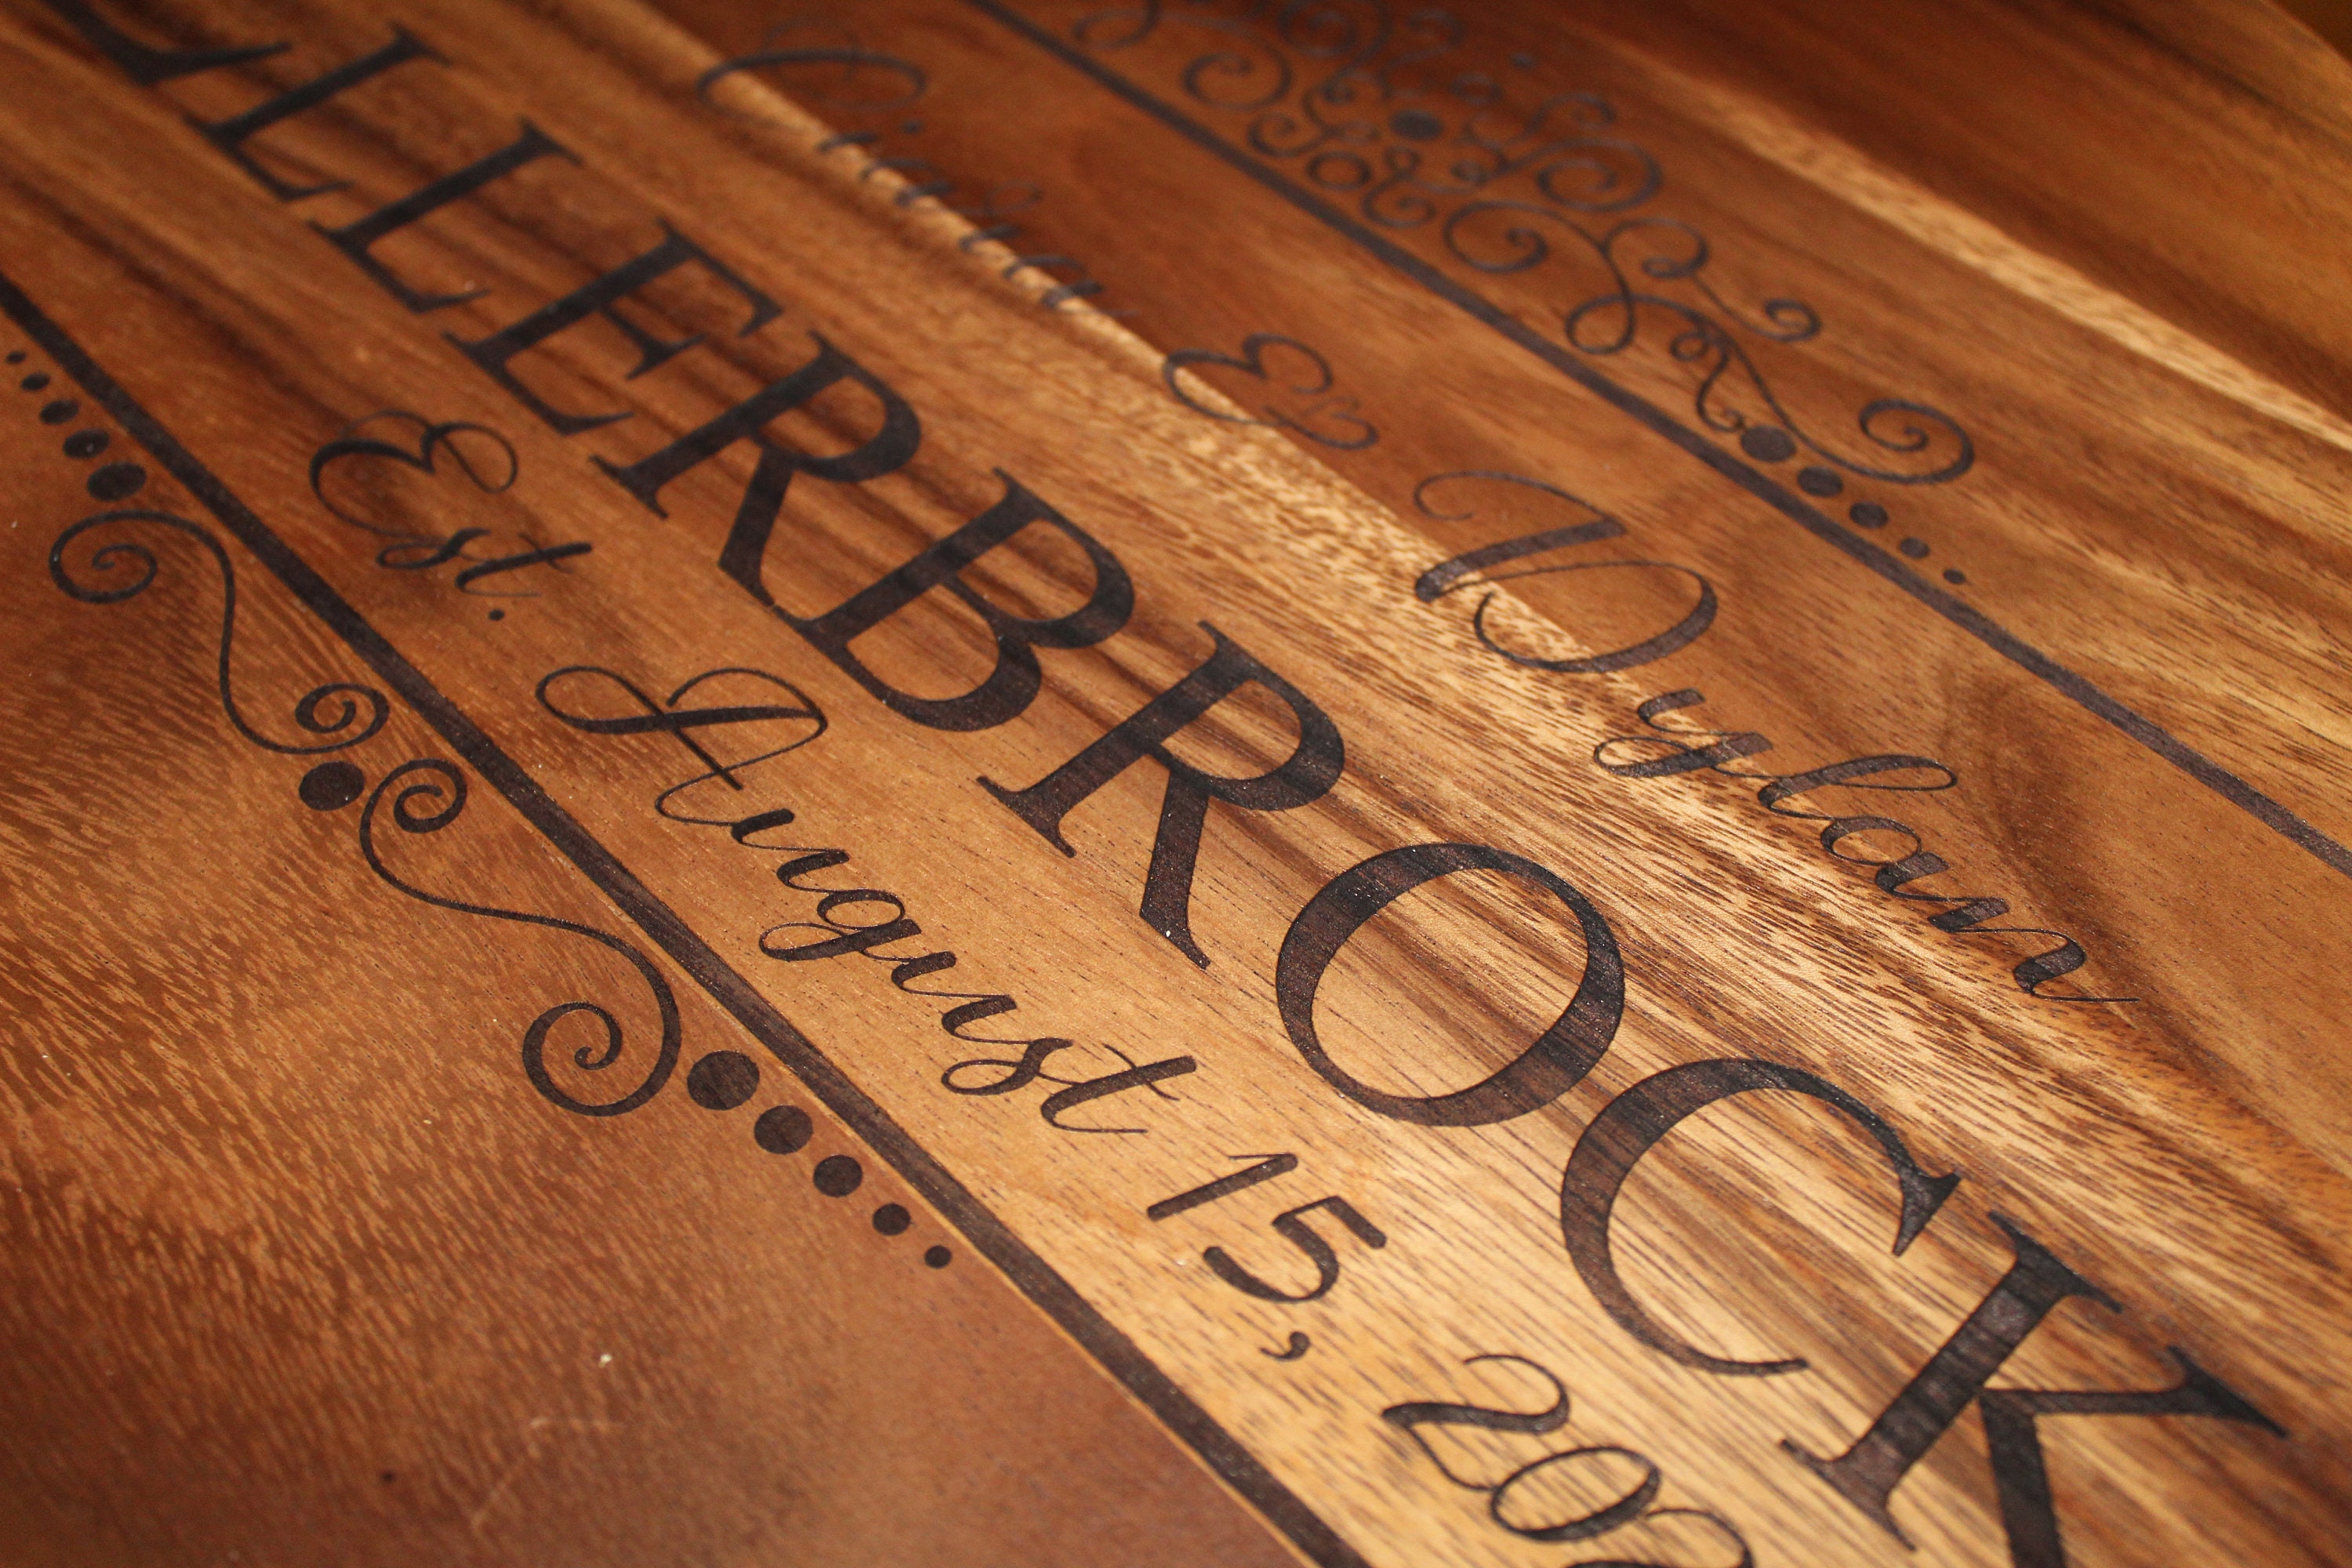 & Dylan
LLERBROCK
Est. August 15, 202